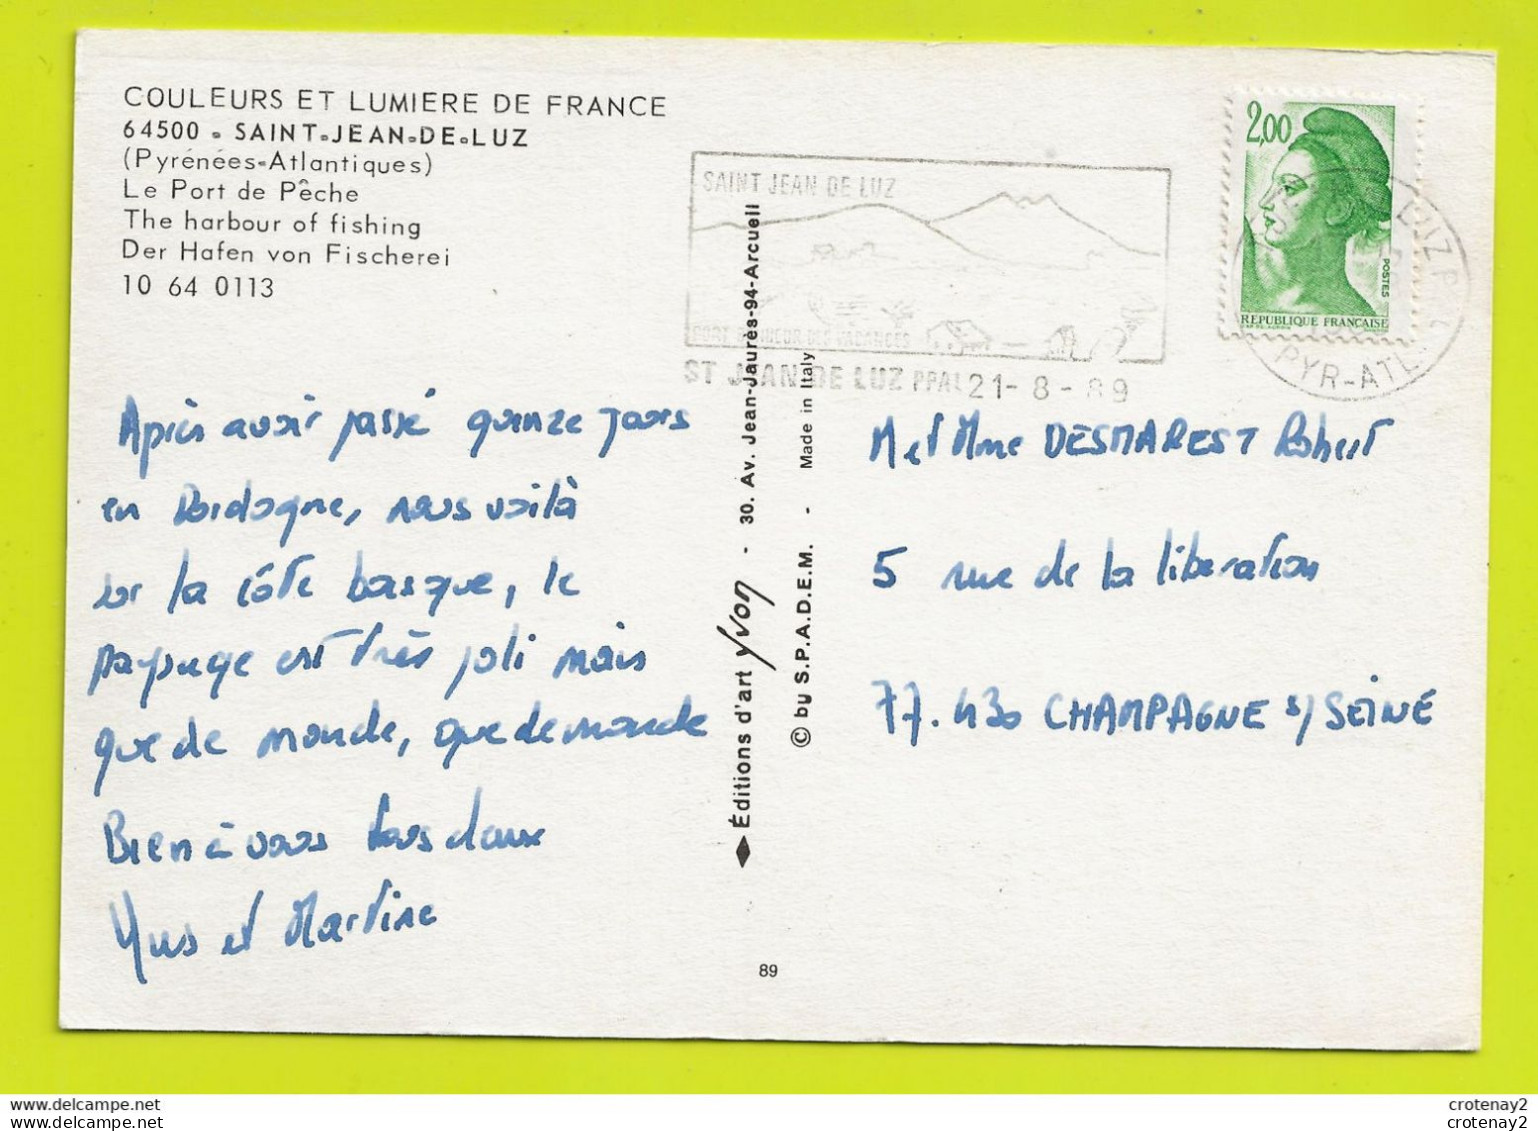 COULEURS ET LUMIERE DE FRANCE
64500 - SAINT-JEAN-DE-LUZ
(Pyrénées-Atlantiques)
Le Port de Pêche
The harbour of fishing
Der Hafen von Fischerei
10 64 0113
SAINT JEAN DE LUZ
DES VACANCES
ST JEAN DE LUZ PPAL 21-8-89
2,00
POSTES
REPUBLIQUE FRANÇAISE
LUZ
PYR-ATL
Après avoir passé quinze jours
en Dordogne, nous voilà
sur la côte basque, le
paysage est très joli mais
que de monde, que de monde
Bien à vous tous deux
Yves et Martine
Éditions d'art Yvon - 30. Av. Jean-Jaurès-94-Arcueil
© by S.P.A.D.E.M. - Made in Italy
89
M et Mme DESMAREST Robert
5 rue de la libération
77.430 CHAMPAGNE s/ SEINE
crotenay2
crotenay2